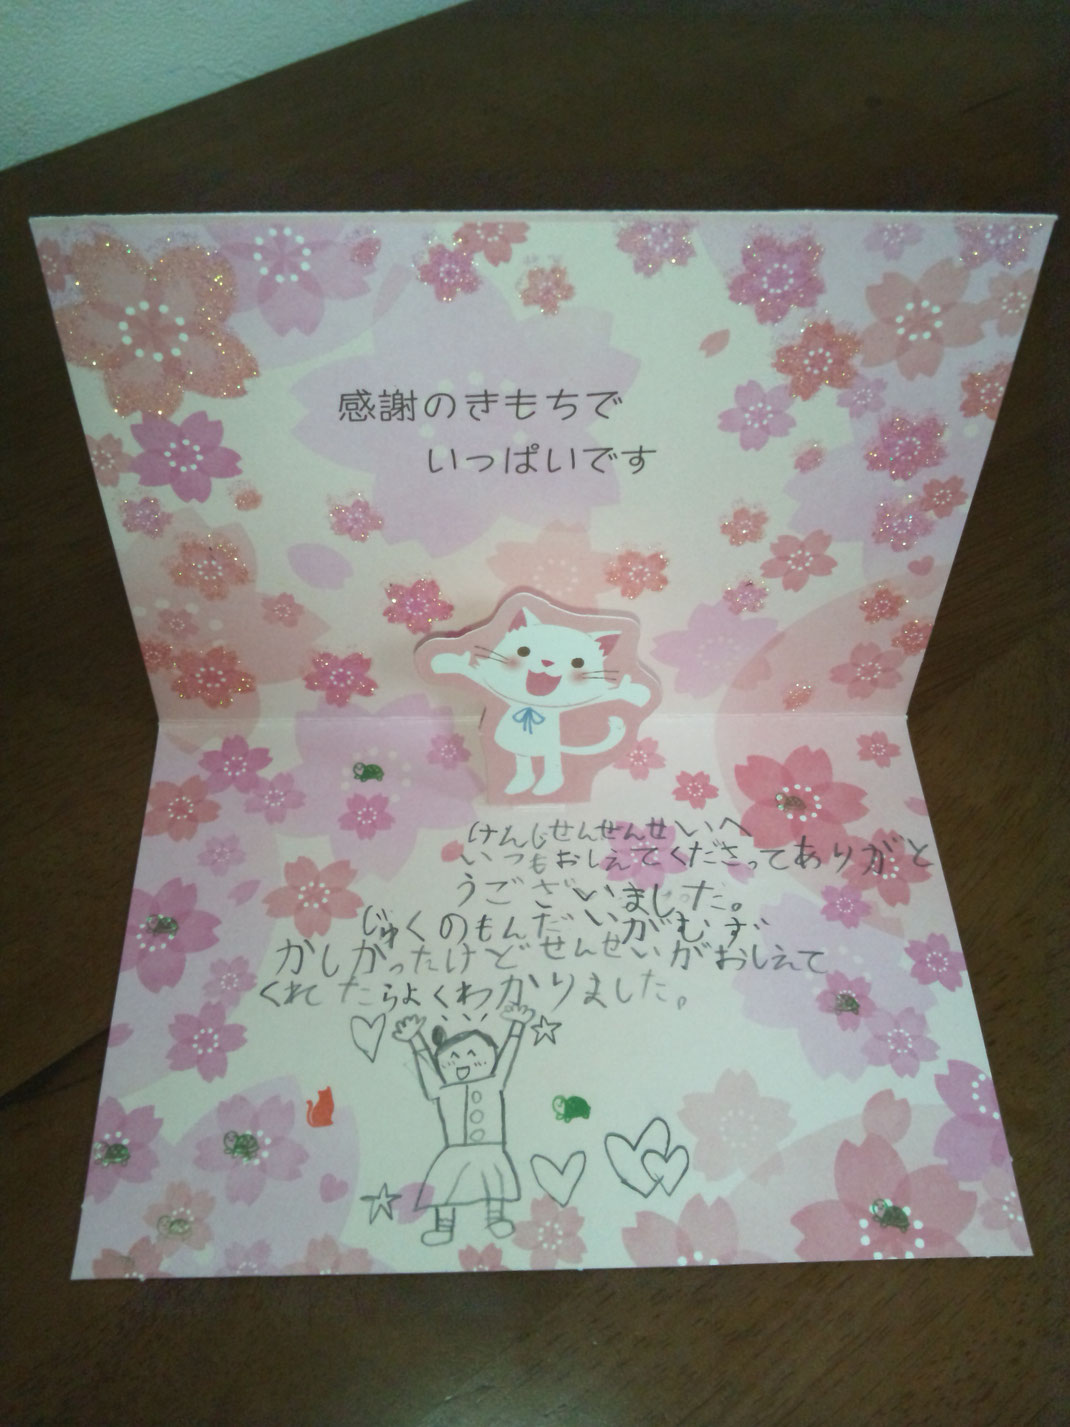 感謝のきもちで
いっぱいです
けんじせんせんせいへ
いつもおしえてくださってありがと
うございました。
じゅくのもんだいがむず
かしかったけどせんせいがおしえて
くれたらよくわかりました。